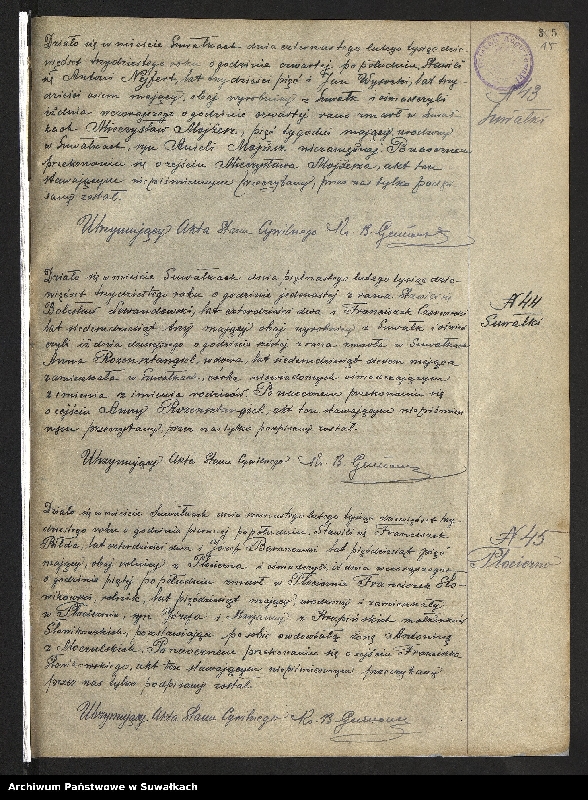 15
№ 43
Suwałki
Działo się w mieście Suwałkach dnia czternastego lutego tysiąc dzie-
więćset trzydziestego roku o godzinie czwartej po południu. Stawili
się Antoni Nejfert, lat trzydzieści pięć i Jan Wysocki, lat trzy-
dzieści osiem mający, obaj wyrobnicy z Suwałk i oświadczyli
iż dnia wczorajszego o godzinie czwartej rano zmarł w Suwał-
kach Mieczysław Mojżesz, pięć tygodni mający, urodzony
w Suwałkach, syn Anieli Mojżesz niezamężnej. Po naocznem
przekonaniu się o zejściu Mieczysława Mojżesza, akt ten
stawającym niepiśmiennym przeczytany, przez nas tylko podpi-
sany został.
Utrzymujący Akta Stanu Cywilnego Ks. B.
№ 44
Suwałki
Działo się w mieście Suwałkach dnia piętnastego lutego tysiąc dzie-
więćset trzydziestego roku o godzinie jedenastej z rana. Stawili się
Bolesław Lewandowski, lat czterdzieści dwa i Franciszek
lat siedemdziesiąt trzy mający obaj wyrobnicy z Suwałk i oświad-
czyli iż dnia dzisiejszego o godzinie szóstej z rana zmarła w Suwałkach
Anna Rozensztangel, wdowa, lat siedemdziesiąt mająca
zamieszkała w Suwałkach, córka niewiadomych oświadczającym
z imienia i z imienia rodziców. Po naocznem przekonaniu się
o zejściu Anny Rozensztangel, akt ten stawającym niepiśmien-
nym przeczytany, przez nas tylko podpisany został.
Utrzymujący Akta Stanu Cywilnego Ks. B.
№ 45
Płociczno
Działo się w mieście Suwałkach dnia lutego tysiąc dziewięćset trzy-
dziestego roku o godzinie pierwszej po południu. Stawili się Franciszek
Bilda, lat czterdzieści dwa i Józef lat pięćdziesiąt pięć
mający, obaj rolnicy z Płociczna i oświadczyli, iż dnia wczorajszego
o godzinie piątej po południu zmarł w Płocicznie Franciszek Sło-
mkowski, rolnik, lat pięćdziesiąt mający urodzony i zamieszkały
w Płocicznie, syn Józefa i z Krupińskich małżonków
pozostawiając po sobie owdowiałą żonę
z Moczulskich. Po naocznem przekonaniu się o zejściu Franciszka
akt ten stawającym niepiśmiennym przeczytany
przez nas tylko podpisany został.
Utrzymujący Akta Stanu Cywilnego Ks. B.
Archiwum Państwowe w Suwałkach